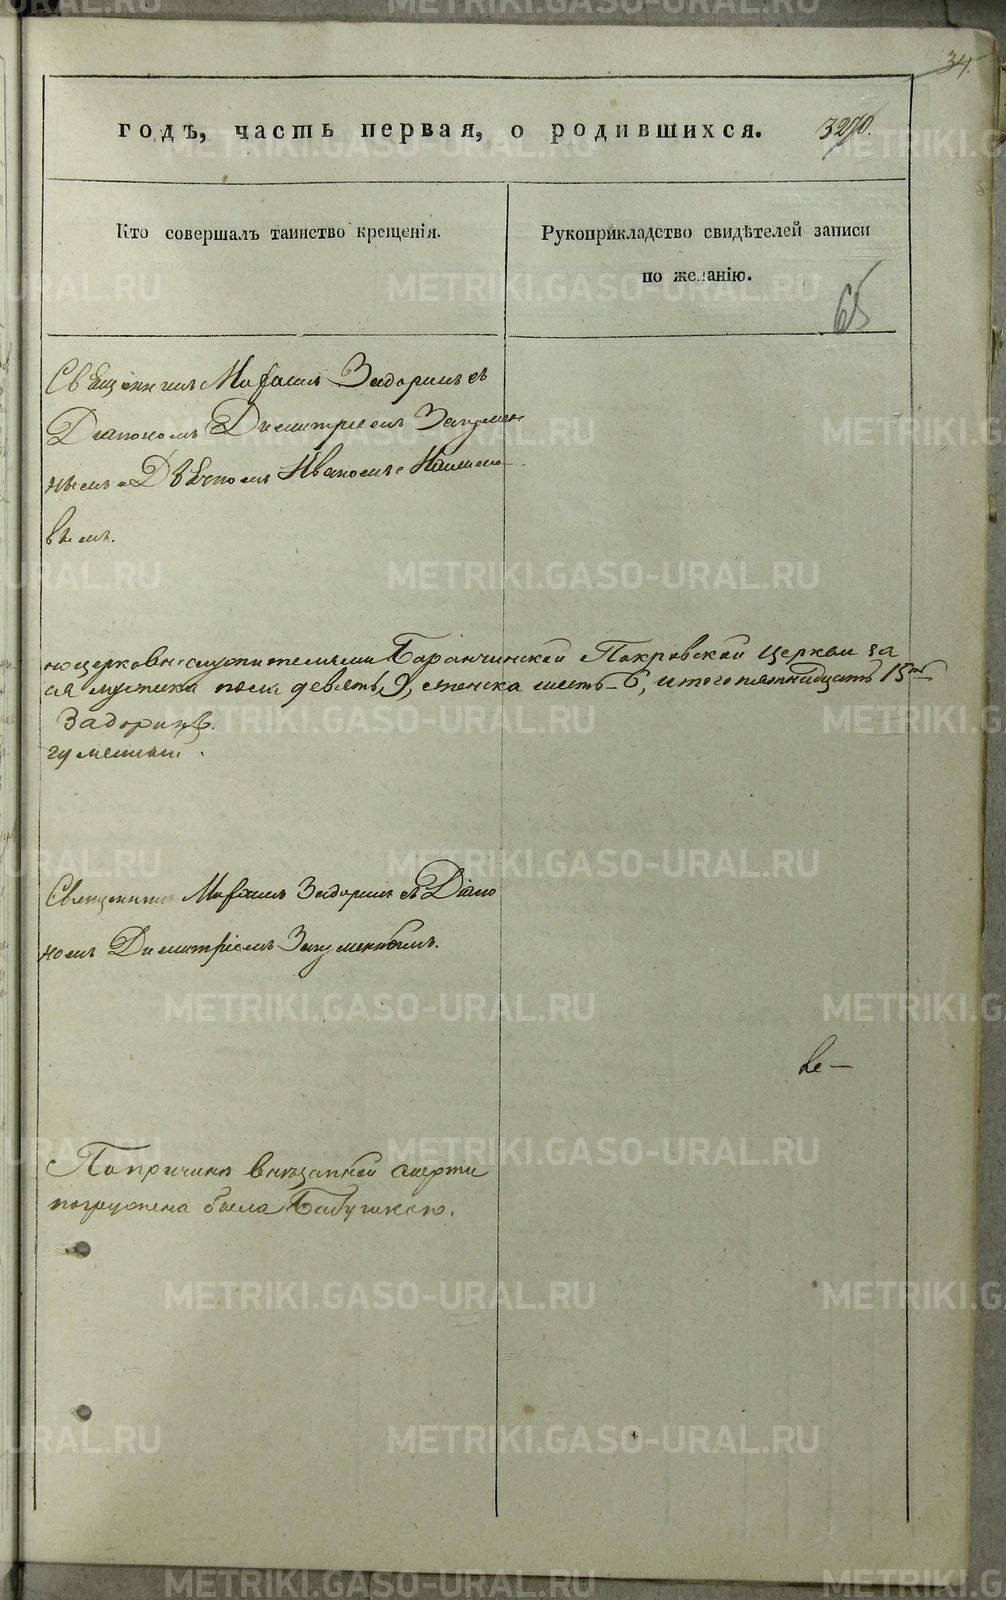 34.
годъ, часть первая, о родившихся.
3270.
Кто совершалъ таинство крещенія.
Рукоприкладство свидѣтелей записи
по желанію.
65
Священникъ Михаилъ Задоринъ съ
Діакономъ Димитріемъ Загумен
нымъ и Дьячкомъ Иваномъ
вымъ.
ноцерковнослужителями Баранчинской Покровской Церкви за
ся мужеска пола девять 9, женска шесть 6, итого пятнадцать 15
Задоринъ.
гуменный.
Священникъ Михаилъ Задоринъ съ Діако
номъ Димитріемъ Загуменнымъ.
По причинѣ внезапной смерти
погружена была Бабушкою.
METRIKI.GASO-URAL.RU